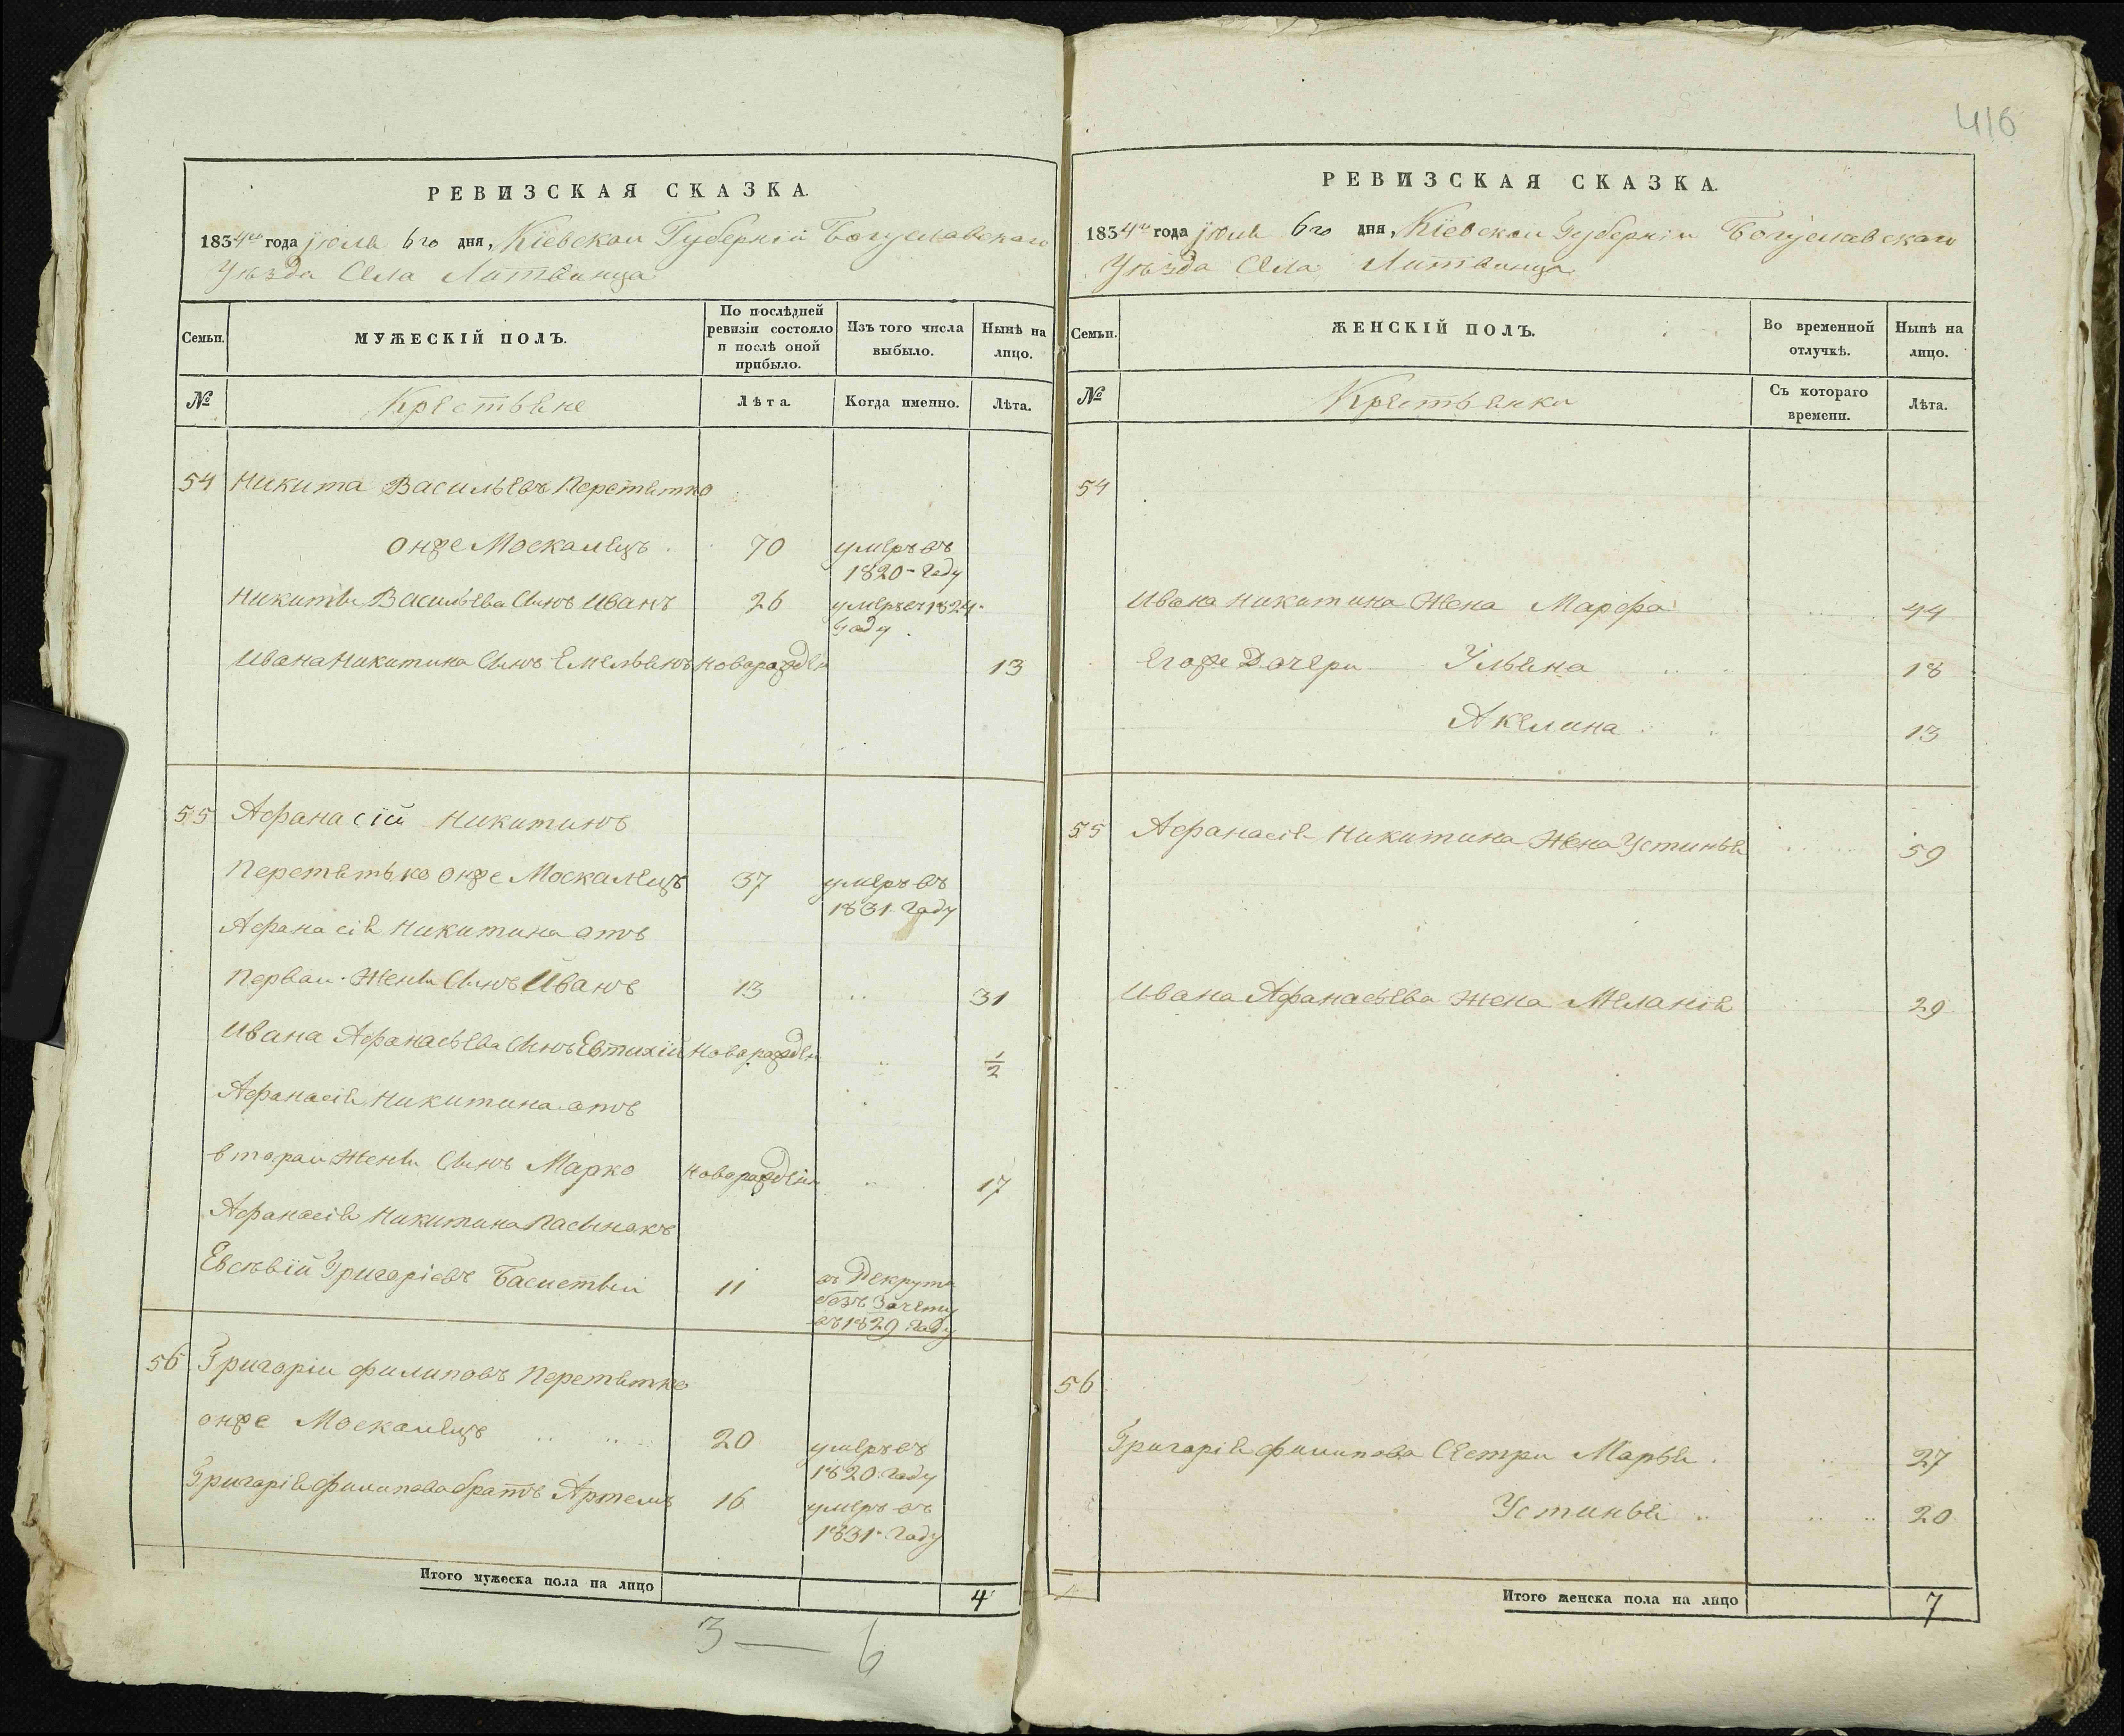 416
РЕВИЗСКАЯ СКАЗКА.
1834го года Іюля 6го дня, Кіевской Губерніи Богуславскаго
Уѣзда Села Литвинца
Семьи.
МУЖЕСКІЙ ПОЛЪ.
По послѣдней ревизіи состояло и послѣ оной прибыло.
Изъ того числа выбыло.
Нынѣ на лицо.
№
Крестьяне
Лѣта.
Когда именно.
Лѣта.
54 Никита Васильевъ Перетятко
онже Москалецъ 70 умеръ въ
1820 Году
Никиты Васильева Сынъ Иванъ 26 умеръ въ 1824
Году
Ивана Никитина Сынъ Емельянъ новорожден 13
55 Афанасій Никитинъ
Перетятько онже Москалецъ 37 умеръ въ
1831 Году
Афанасія Никитина отъ
первой Жены Сынъ Иванъ 13 31
Ивана Афанасьева Сынъ Евтихій новорожден 1/2
Афанасія Никитина отъ
второй Жены Сынъ Марко новорожден 17
Афанасія Никитина пасынокъ
Евсѣвій Григоріевъ Басистый 11 въ Рекруты
безъ Зачету
въ 1829 Году
56 Григорій Филиповъ Перетятко
онже Москалецъ 20 умеръ въ
1820 Году
Григорія Филипова братъ Артемъ 16 умеръ въ
1831 Году
Итого мужеска пола на лицо 4
3 — 6
РЕВИЗСКАЯ СКАЗКА.
1834го года Іюля 6го дня, Кіевской Губерніи Богуславскаго
Уѣзда Села Литвинца
Семьи.
ЖЕНСКІЙ ПОЛЪ.
Во временной отлучкѣ.
Нынѣ на лицо.
№
Крестьянки
Съ котораго времени.
Лѣта.
54
Ивана Никитина Жена Марфа 44
Егоже Дочери Ульяна 18
Акелина 13
55 Афанасія Никитина Жена Устинья 59
Ивана Афанасьева жена Меланія 29
56
Григорія Филипова Сестри Марья 27
Устинья 20
Итого женска пола на лицо 7